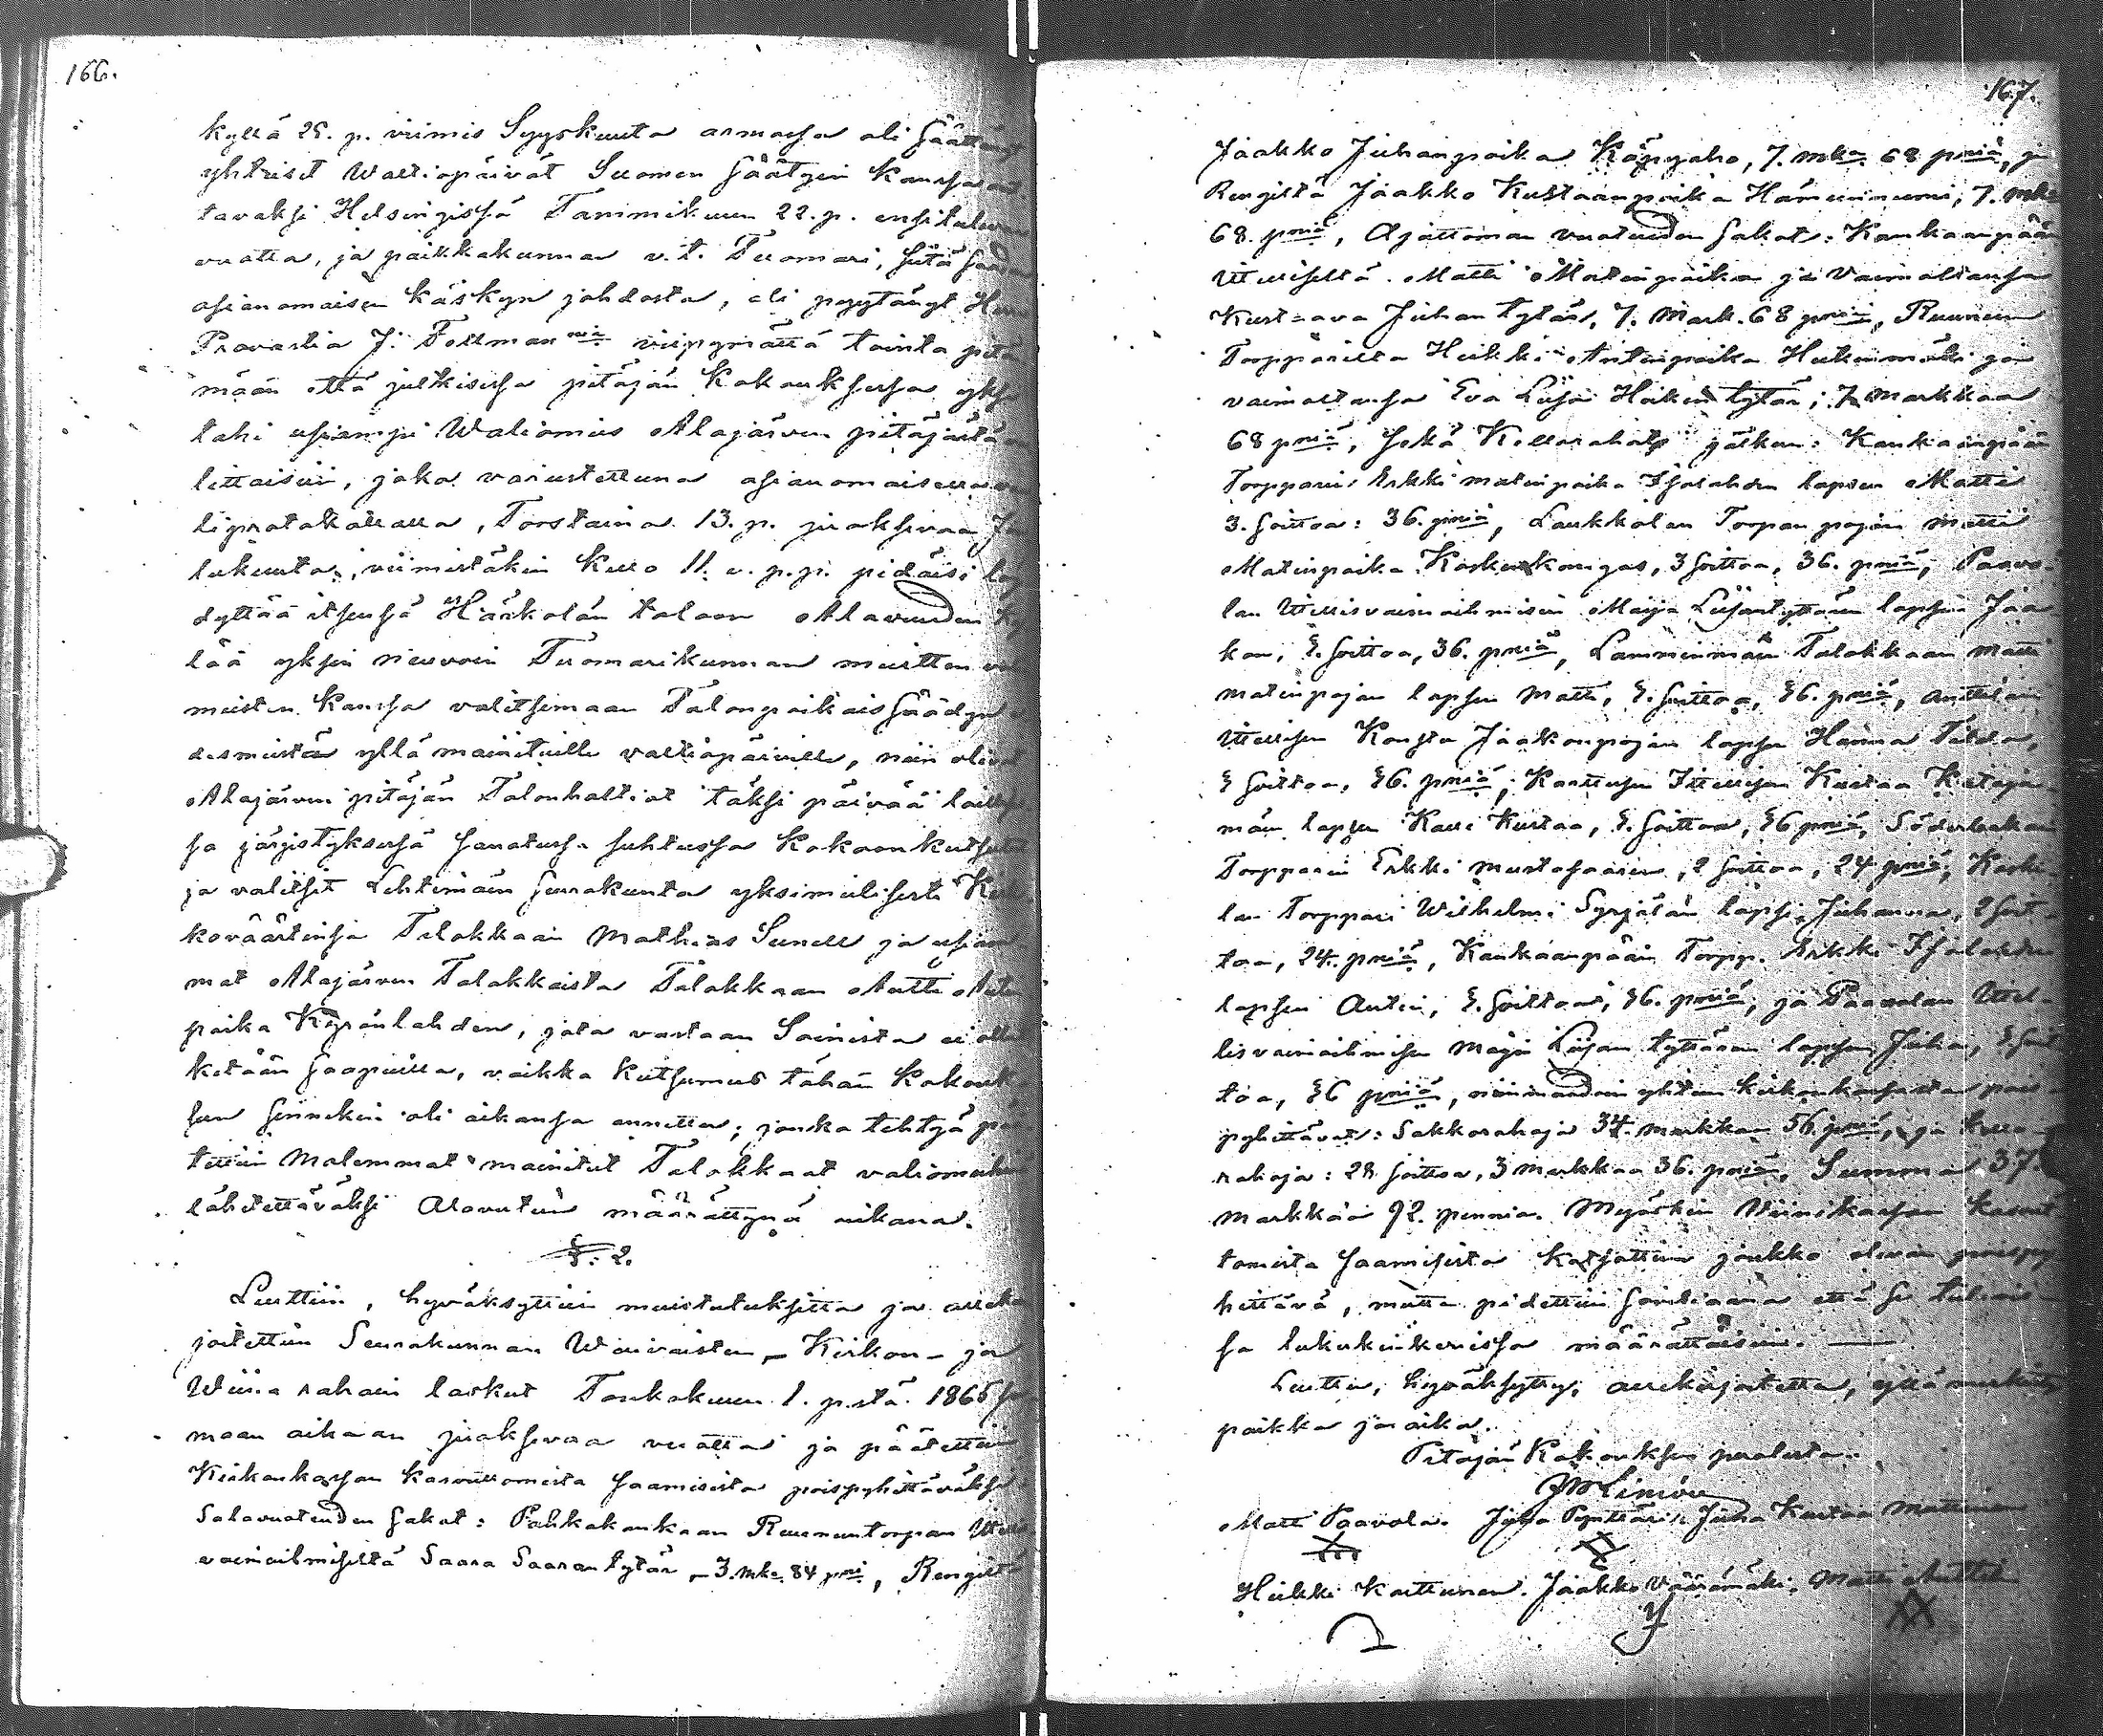 166.
kyllä 25. p. viimis Syyskuuta armossa oli Säättänyt
yhteiset Waltiopäivät Suomen Säätyin kanssa
tavaksi Helsingissä Tammikuun 22. p. ensitulevaa
vuotta, ja paikkakunnan v.t. Tuomari, Siitä Saadun
asianomaisen käskyn johdosta, oli pyytänyt Herra
Provastia J. Fellman niä viipymättä tointa pitä
mään että julkisessa pitäjän Kokouksessa yksi
tahi usiampi Waliomies Alajärven pitäjästä
littaisiin, joka varustettuna asianomaisella
liprotokollalla, Torstaina 13. p. juoksevaa Jou
lukuuta, viimistäkin kello 11. e. p.p. pidäisi löy
dyttää itsensä Härkolän taloon Alavuuden ky
lää yksin neuvoin Tuomarikunnan muitten val
miesten kanssa valitsemaan Talonpoikaissäädyn e
desmiestä yllä mainituille valtiopäiville, niin olivat
Alajärven pitäjän Talonhaltiat täksi päivää laillises
sa järjestyksessä sanatussa suhteessa kokoonkutsutut
ja valitsit Lehtimäen Seurakunta yksimielisesti Kirk
koväärtinsä Talokkaan Mathias Sunell ja usiam
mat Alajärven Talokkaista Talokkaan Antti Antin
poika Kyrönlahden, jota vastaan Soinista ei ollut
ketään saapuilla, vaikka kutsumus tähän Kokouk
seen sinnekin oli aikansa annettu; jonka tehtyä pää
tettiin Molemmat mainitut Talokkaat valiomiehiksi
lähdettäväksi Alavuteen määrättynä aikana.
§. 2.
Luettiin, hyväksyttiin muistutuksitta ja allekir
joitettiin Seurakunnan Waivaisten - Kirkon - ja
Wiina rahain laskut Toukokuun 1. p.stä 1865 sa
maan aikaan juoksevaa vuotta ja päätettiin
Kirkonkassan kasvullomista saamisista poispyhittäväksi
Salavuoteuden sakot: Pahkakankaan Ruununtorpan Itell.
vaimoihmiseltä Saara Saaran tytär - 3. mka. 84 pni, Rengiltä
167.
Jaakko Juhanpoika Käpyaho, 7. mka. 68 pniä, ja
Rengiltä Jaakko Kustaanpoika Hämeenniemi, 7. mka
68. pniä, Ajattoman vuoteuden sakot: Kankaanpään
Itelliseltä Matti Matinpoika ja Vaimoltansa
Kustaava Juhan tytär, 7. Mark. 68 pniä, Ruunun
Torpparilta Heikki Antinpoika Huhtimäki ja
vaimoltansa Eva Liisa Heikin tytär; 7 Markkaa
68 pniä, sekä Kellorahoja jälkeen: Kankaanpään
Torpparin Erkki matinpoika Isolahden lapsen Matti
3. soittoa: 36. pniä, Laukkolan Torpan pojan matti
Matinpoika Koskenkangas, 3 soittoa, 36. pniä, Paavo
lan Itellisvaimoihmisen Maija Liisantyttären lapsen Jaa
kon, 3. soittoa, 36. pniä, Lamminmäen Talokkaan matti
matinpojan lapsen Matti, 3. soittoa, 36. pniä, Anttilan
Itellisen Kousta Jaakonpojan lapsen Hanna Tilda,
3 soittoa, 36. pniä; Karttusen Itellisen Kustaa Katajа
mäen lapsen Kalle Kustaa, 3. soittoa, 36 pniä, Söderbakan
Torpparin Erkki Mustasaaren, 2 soittoa, 24 pniä, Koski
lan Torppari Wilhelmi Syrjälän lapsen Juhanna, 2 soit
toa, 24. pniä, Kankaanpään Torpp. Erkki Isolahden
lapsen Antin, 3. soittoa, 36. pniä, ja Paavolan Itel
lisvaimoihmisen Maija Liisan tyttären lapsen Juha, 3 soit
toa, 36 pniä, niinmuodoin yhteen kirkonkassasta pois
pyhittävät: Sakkorahoja 34. markkaa 56. pniä, ja kello
rahoja: 28 soittoa, 3 markkaa 36. pniä, Summa 37.
markkaa 92. penniä. Myöskin Wiinikassan kasvut
tomista saamisista katsottiin joukko olevan poispy
hittävä, mutta pidettiin soveliaana että se tulevis
sa lukukinkereissä määrättäisiin.
Luettu, hyväksytty, allekirjoitettu, yllä merkitty
paikka ja aika.
Pitäjän Kokouksen puolesta.
JM Limón
Matti Paavola. Juha Pynttäri. Juha Kustaa Mattinen
Heikki Karttunen. Jaakko Vääränmäki. Matti Anttila